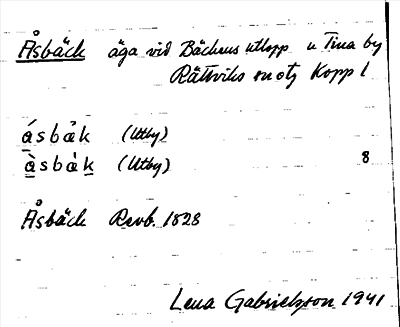 Åsbäck äga vid Bäckens utlopp u Tina by
Rättviks sn otj Kopp l
ásbàk (Utby)
àsbàk (Utby) 8
Åsbäck Revb. 1828
Lena Gabrielsson 1941